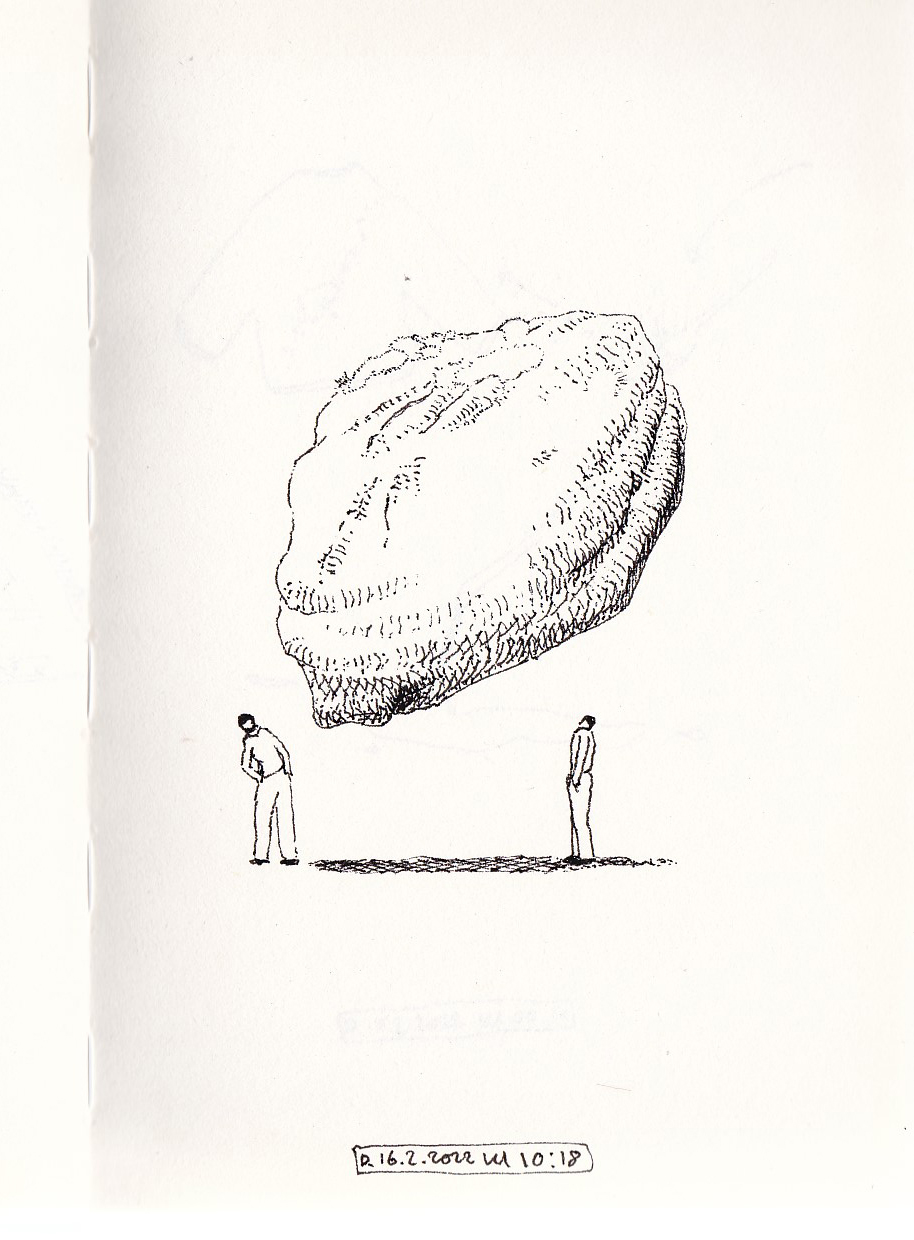 D. 16.2.2022 kl 10:18